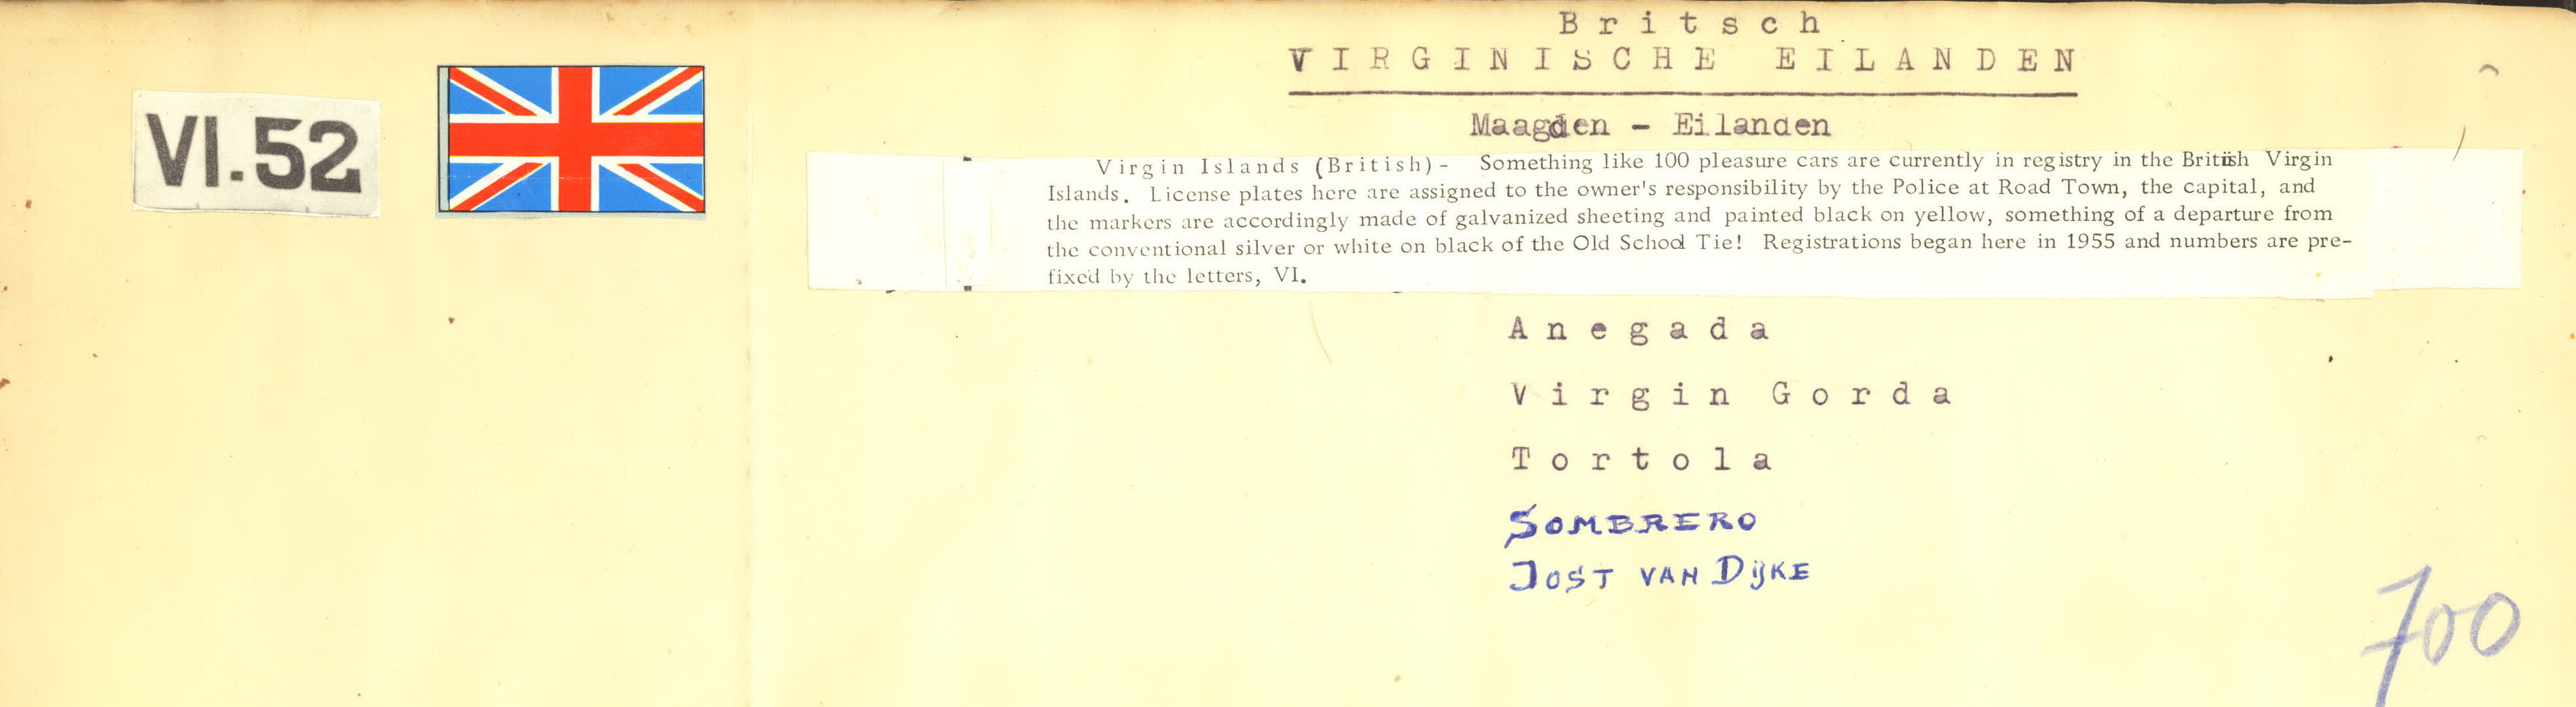 Britsch
VIRGINISCHE EILANDEN
VI.52
Maagden - Eilanden
Virgin Islands (British) - Something like 100 pleasure cars are currently in registry in the British Virgin
Islands. License plates here are assigned to the owner's responsibility by the Police at Road Town, the capital, and
the markers are accordingly made of galvanized sheeting and painted black on yellow, something of a departure from
the conventional silver or white on black of the Old School Tie! Registrations began here in 1955 and numbers are pre-
fixed by the letters, VI.
Anegada
Virgin Gorda
Tortola
SOMBRERO
JOST VAN DIJKE
700